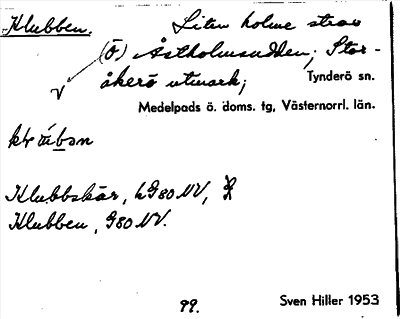 Klubben. Liten holme strax
(Ö) Åstholmsudden; Stor-
V åkerö utmark; Tynderö sn.
Medelpads ö. doms. tg, Västernorrl. län.
Klubbskär, G80 NV,
Klubben, G80 NV.
99. Sven Hiller 1953